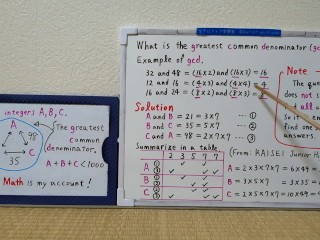 integers A, B, C.
A
98
C
35
The greatest
common
denominator,
A+B+C<1000
Math is my account!
What is the greatest common denominator (gc
Example of gcd.
32 and 48 = (16×2) and (16×3) = 16
12 and 16 = (4×3) and (4×4) = 4
16 and 24 = (8×2) and (8×3) =
Solution
A and B = 21 = 3×7 ... ①
B and C = 35 = 5×7 ... ②
C and A = 98 = 2×7×7 ... ③
Summarize in a table
2 3 5 7 7
A ①
③
B ①
②
C ②
③
Note
The qu
does not s
and all
So it en
find one s
answers.
(From: KAISEI Junior H
A = 2×3×7×7 = 6×49 =
B = 3×5×7 = 3×35 =
C = 2×5×7×7 = 10×49 =